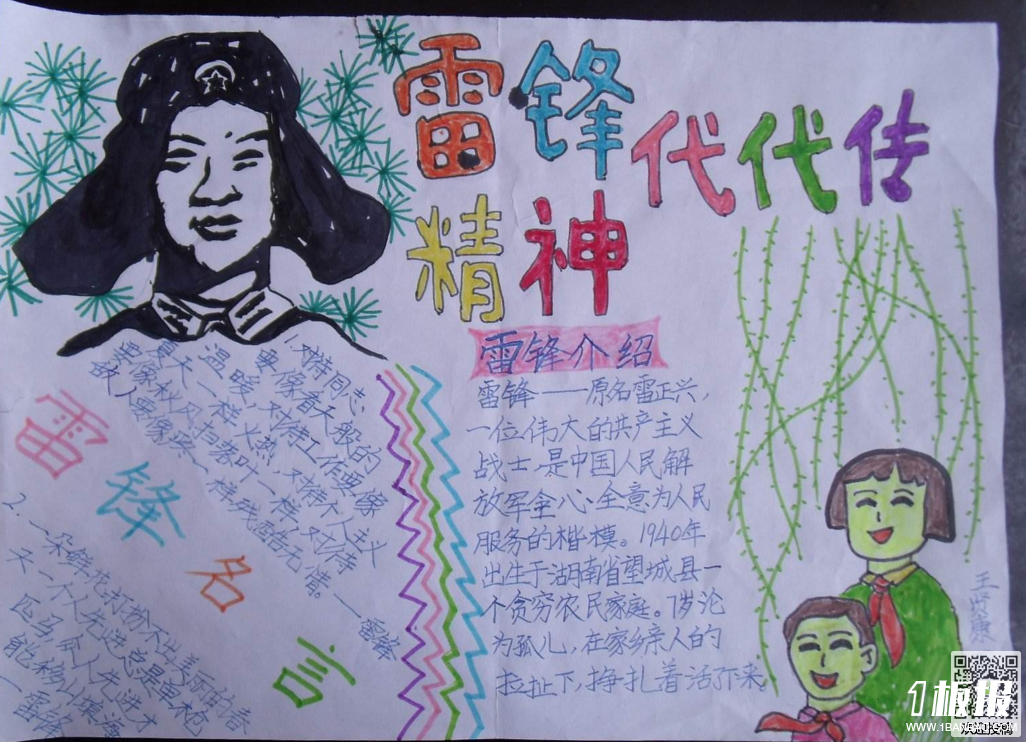 雷锋
精神
代代传
1.对待同志
要像春天般的
温暖,对待工作要像
夏天一样火热,对待个人主义
要像秋风扫落叶一样,对待
敌人要像一样残酷无情。
——雷锋
雷锋名言
2.一朵鲜花打扮不出美丽的春
天一个人先进总是单枪
匹马,人先进才
能移山填海
—雷锋
雷锋介绍
雷锋——原名雷正兴,
一位伟大的共产主义
战士,是中国人民解
放军全心全意为人民
服务的楷模。1940年
出生于湖南省望城县一
个贫穷农民家庭。7岁沦
为孤儿,在家乡亲人的
拉扯下,挣扎着活下来。
王贤康
1板报
WWW.1BANBAO.COM